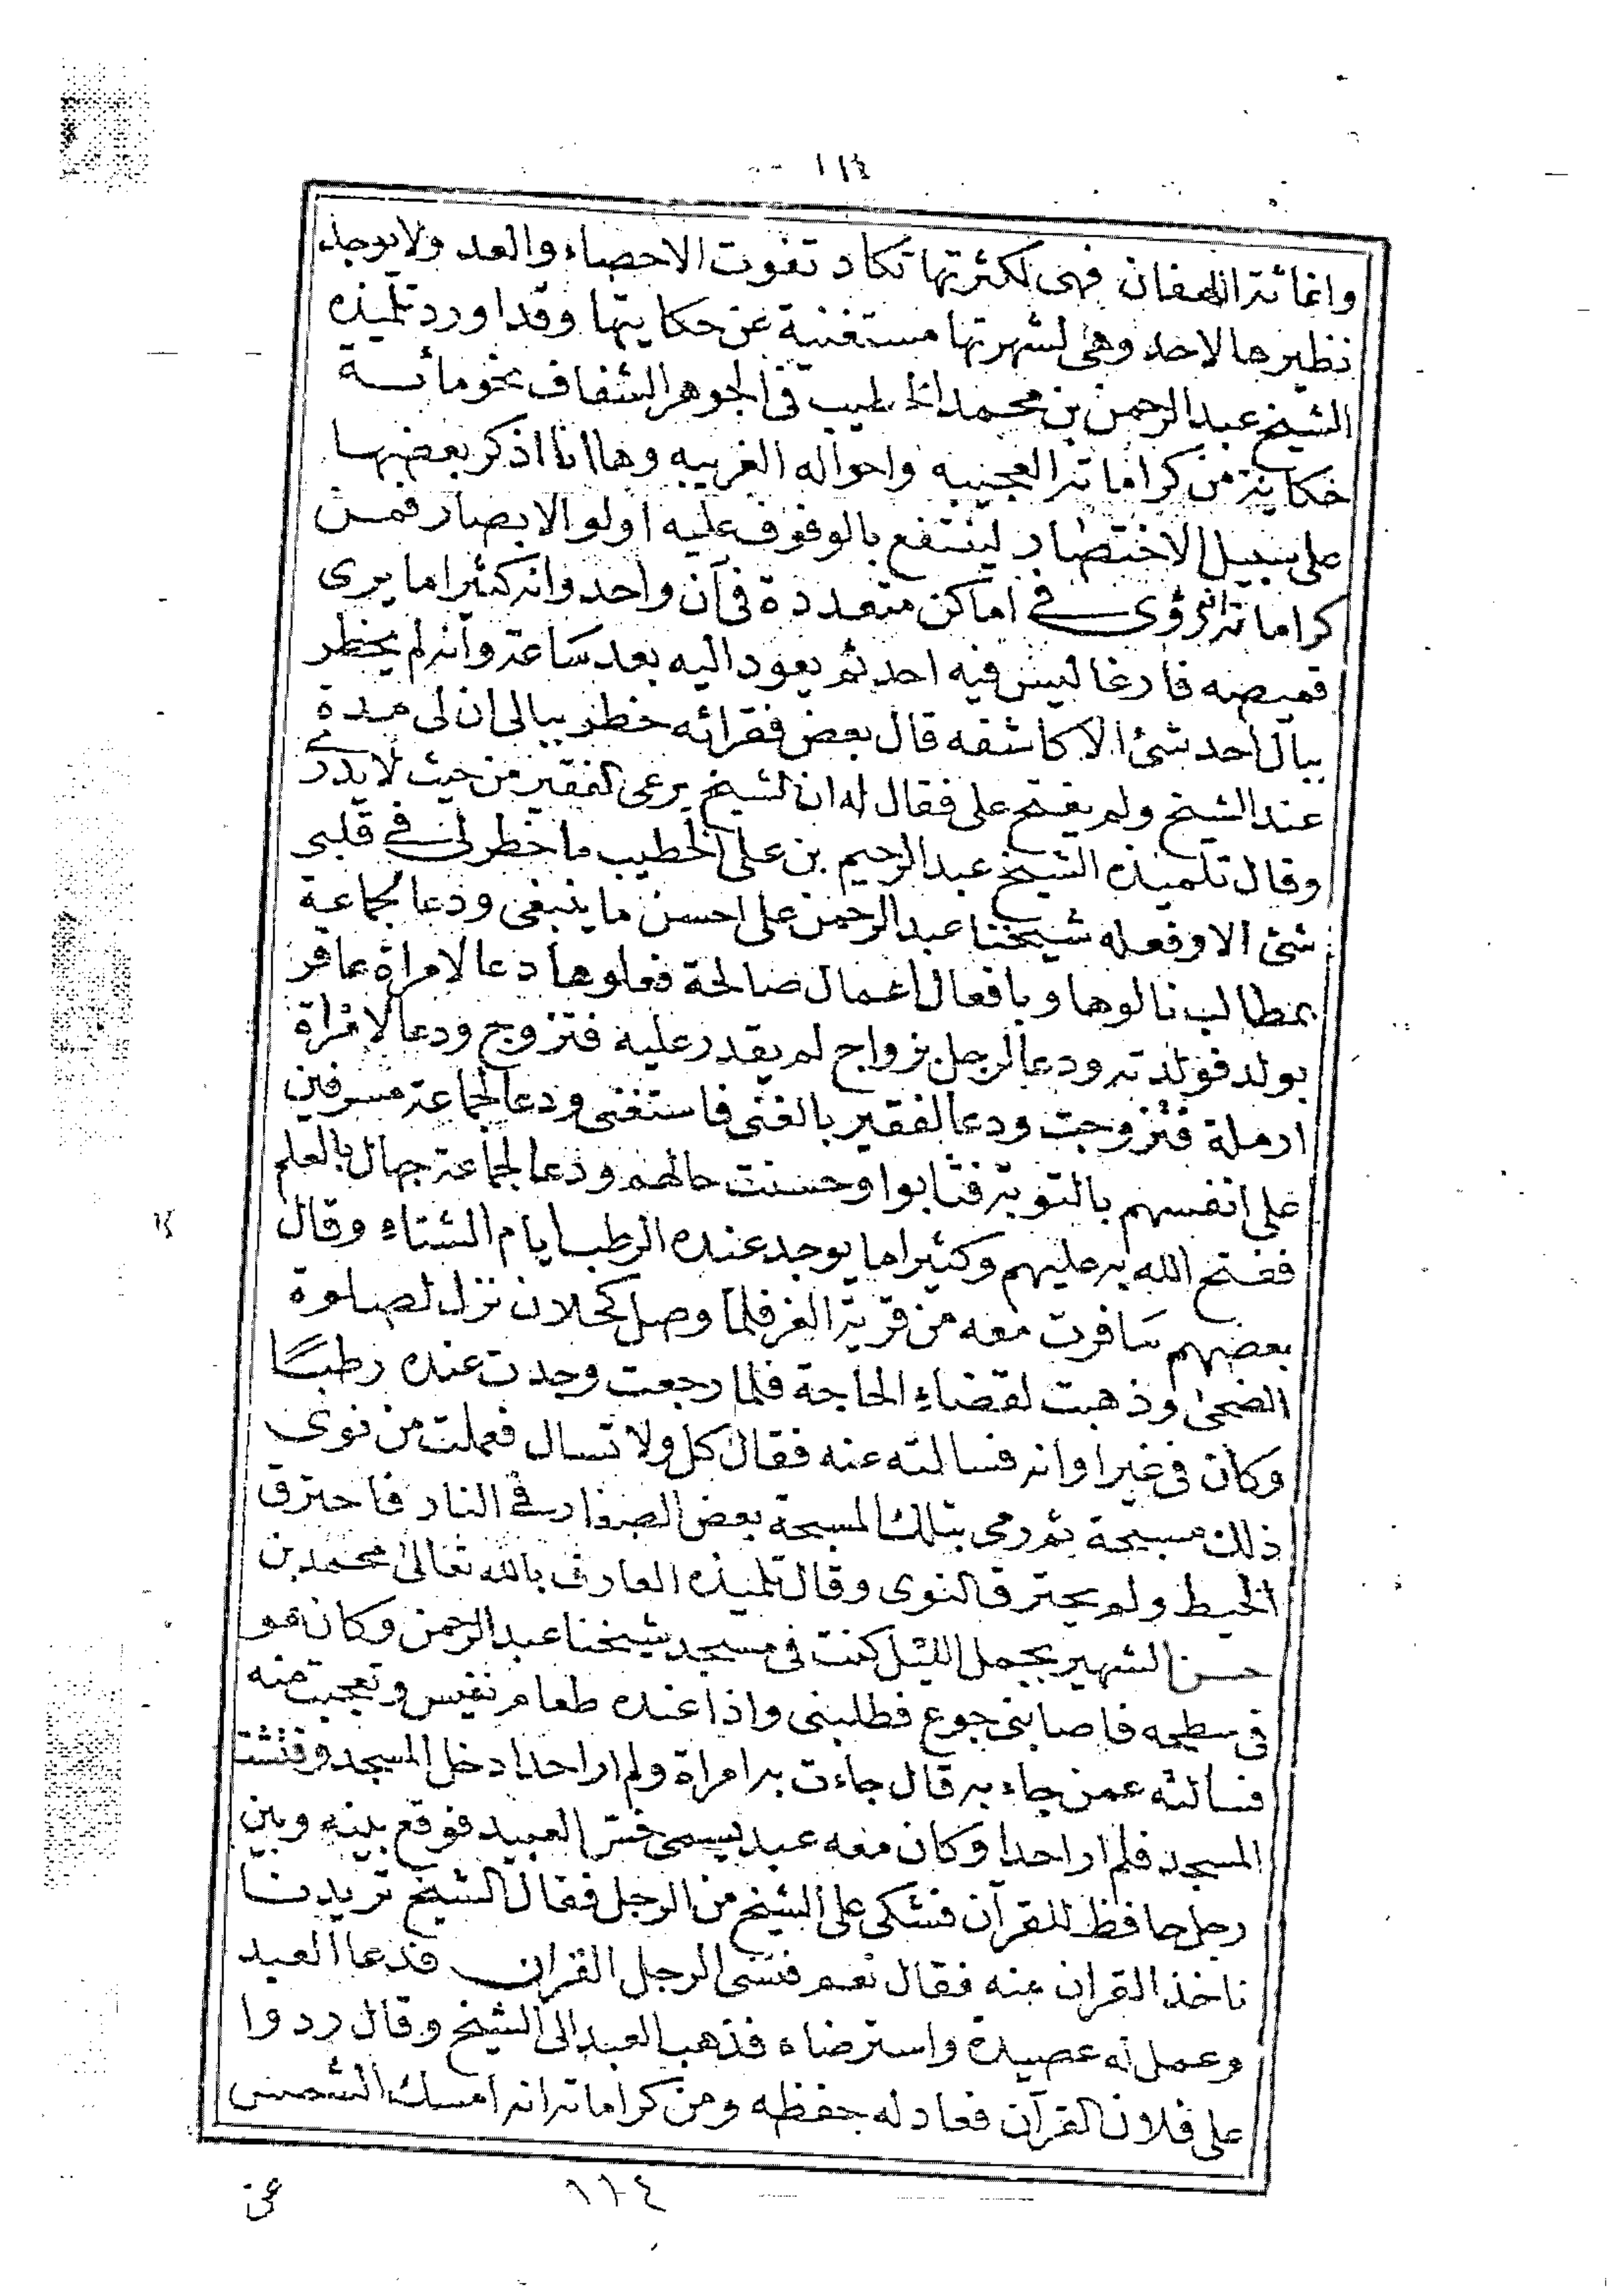 واغاثته اللهفان فهى لكثرتها تكاد تفوت الاحصاء والعد ولا يوجد
نظيرها لاحد وهى لشهرتها مستغنية عن حكايتها وقد اورد تلميذه
الشيخ عبد الرحمن بن محمد الخطيب فى الجوهر الشفاف نحو مائـــة
حكاية من كراماته العجيبه واحواله الغريبه وها انا اذكر بعضها
على سبيل الاختصار لينتفع بالوقوف عليه اولو الابصار فمـــن
كراماته انه رؤى فى اماكن متعددة فى آن واحد وانه كثيرا ما يرى
قميصه فارغا ليس فيه احد ثم يعود اليه بعد ساعة وانه لم يخطر
ببال احد شئ الا كاشفه قال بعض فقرائه خطر ببالى ان لى مدة
عند الشيخ ولم يفتح على فقال له ان الشيخ يرعى الفقير من حيث لا يدرى
وقال تلميذه الشيخ عبد الرحيم بن على الخطيب ما خطر لى فى قلبى
شئ الا وفعله شيخنا عبد الرحمن على احسن ما ينبغى ودعا لجماعة
بمطالب نالوها وبافعال اعمال صالحة فعلوها دعا لامراة عاقر
بولد فولدته ودعا لرجل بزواج لم يقدر عليه فتزوج ودعا لامراة
ارملة فتزوجت ودعا لفقير بالغنى فاستغنى ودعا لجماعة مسرفين
على انفسهم بالتوبة فتابوا وحسنت حالهم ودعا لجماعة جهال بالعلم
ففتح الله به عليهم وكثيرا ما يوجد عنده الرطب ايام الشتاء وقال
بعضهم سافرت معه من قرية الغز فلما وصل كحلان نزل لصلوة
الضحى وذهبت لقضاء الحاجة فلما رجعت وجدت عنده رطبًا
وكان فى غير اوانه فسالته عنه فقال كل ولا تسال فعملت من نوى
ذلك مسبحة ثم رمى بتلك المسبحة بعض الصغار فى النار فاحترق
الخيط ولم يحترق النوى وقال تلميذه العارف بالله تعالى محمد بن
حسن الشهير بجمل الليل كنت فى مسجد شيخنا عبد الرحمن وكان هو
فى سطحه فاصابنى جوع فطلبنى واذا عنده طعام نفيس وتعجبت منه
فسالته عمن جاء به قال جاءت به امراة ولم ار احدا دخل المسجد وفتشت
المسجد فلم ار احدا وكان معه عبد يسمى العبيد فوقع بينه وبين
رجل حافظ للقرآن فشكى على الشيخ من الرجل فقال الشيخ تريدنـا
ناخذ القران عنه فقال نعم فنسى الرجل القران فدعا العبد
وعمل له عصيدة واسترضاه فذهب العبد الى الشيخ وقال ردوا
على فلان القرآن فعاد له حفظه ومن كراماته انه امسك الشمس
١١٤